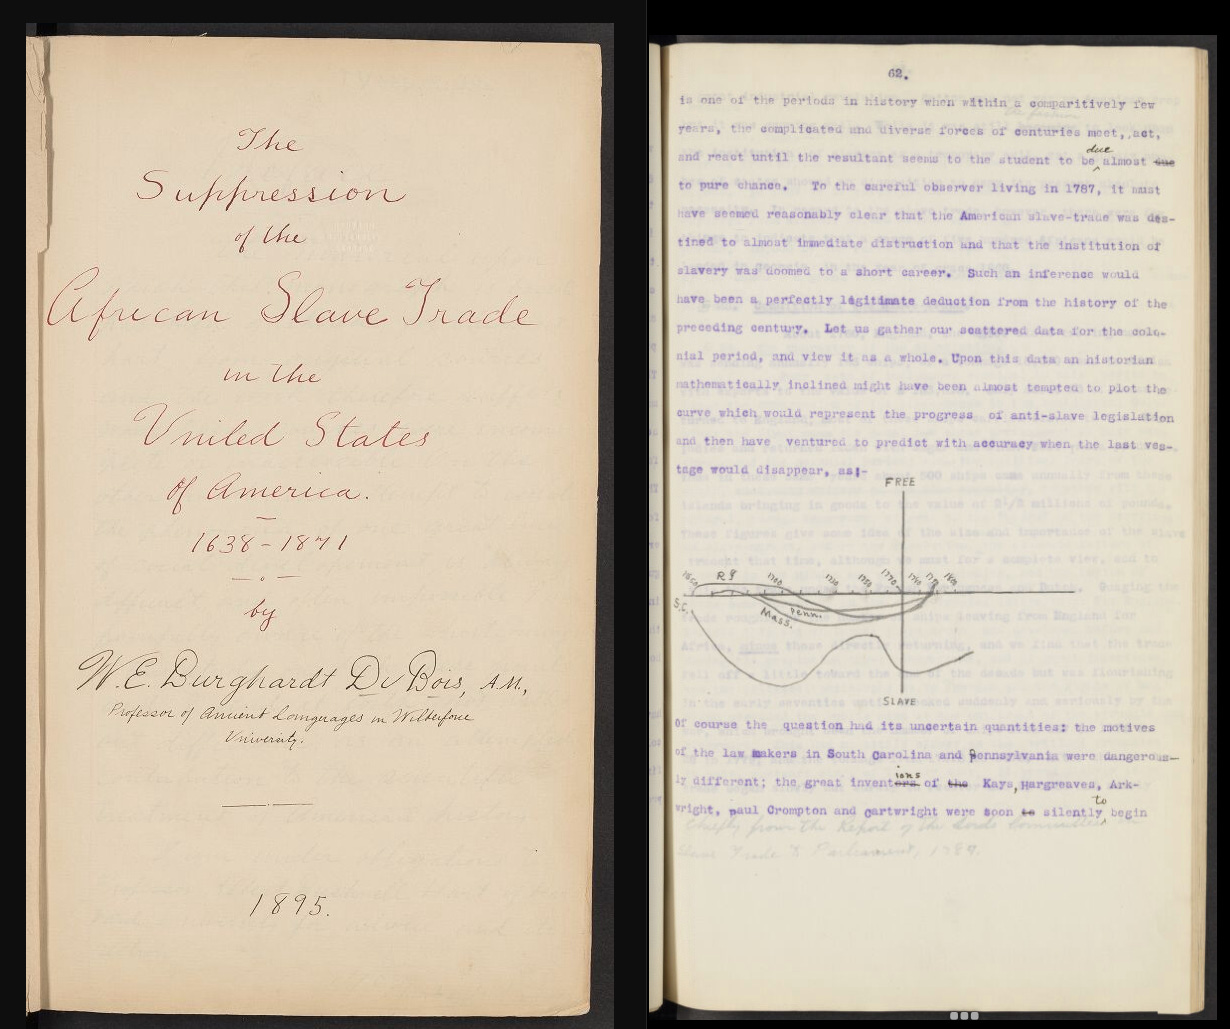 The
Suppression
of the
African Slave Trade
in the
United States
of America.
1638-1871
by
W.E. Burghardt Du Bois, A.M.,
Professor of Ancient Languages in Wilberforce
University.
1895.
62.
is one of the periods in history when within a comparitively few
years, the complicated and diverse forces of centuries meet, act,
due
and react until the resultant seems to the student to be almost due
to pure chance. To the careful observer living in 1787, it must
have seemed reasonably clear that the American slave-trade was des-
tined to almost immediate distruction and that the institution of
slavery was doomed to a short career. Such an inference would
have been a perfectly legitimate deduction from the history of the
preceding century. Let us gather our scattered data for the colo-
nial period, and view it as a whole. Upon this data an historian
mathematically inclined might have been almost tempted to plot the
curve which would represent the progress of anti-slave legislation
and then have ventured to predict with accuracy when the last ves-
tage would disappear, as:-
FREE
1650 R I 1700 1750 1770 1800
S.C. Mass. Penn.
SLAVE
Of course the question had its uncertain quantities: the motives
of the law makers in South Carolina and Pennsylvania were dangerous-
ions
ly different; the great inventors of the Kays, Hargreaves, Ark-
to
wright, paul Crompton and cartwright were soon to silently begin
Chiefly from the Report of the Lords Committee
Slave Trade & Parliament, 1789.